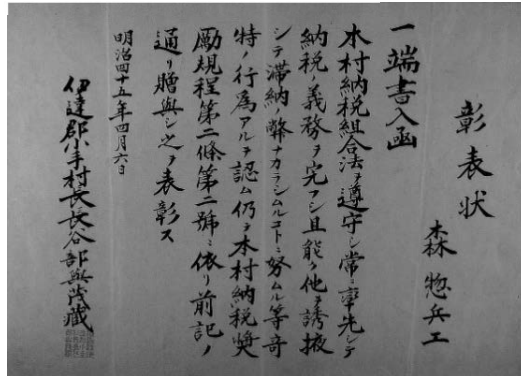 彰表状
森惣兵工
一端書入函
本村納税組合法ヲ遵守シ常ニ率先シテ
納税ノ義務ヲ完フシ且能ク他ヲ誘掖
シテ滞納ノ弊ナカラシムルコトニ努ムル等奇
特ノ行為アルヲ認ム仍ヲ本村納税奨
励規程第二條第二號ニ依リ前記ノ
通リ贈與シ之ヲ表彰ス
明治四十五年四月六日
伊達郡小手村長長谷部與茂藏